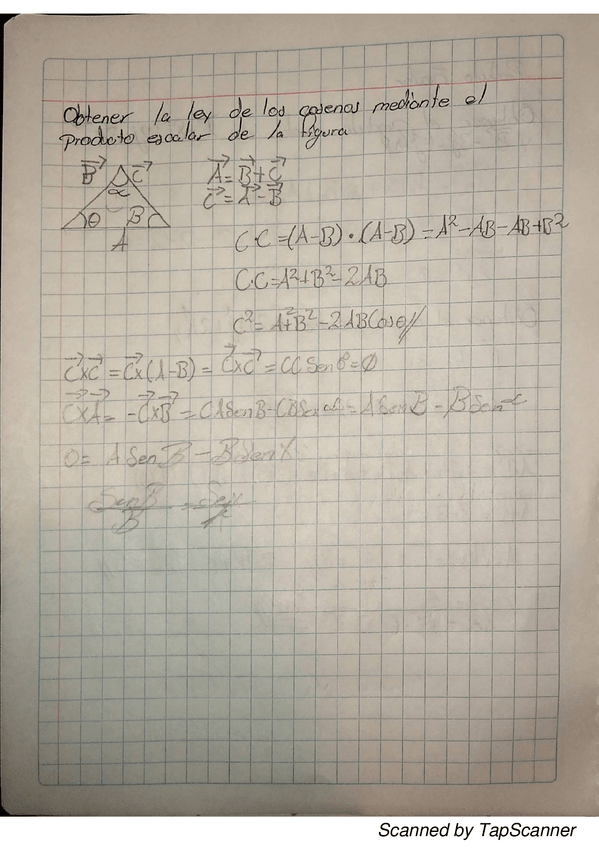 Obtener la ley de los cosenos mediante el
producto escalar de la figura
B⃗ C⃗ A⃗ = B⃗ + C⃗
α C⃗ = A⃗ - B⃗
θ B
A
C·C = (A-B)·(A-B) = A² - AB - AB + B²
C·C = A² + B² - 2AB
C² = A² + B² - 2AB Cosθ //
C⃗xC⃗ = C⃗x(A-B) = C⃗xC⃗ = CC Sen 0 = 0
C⃗xA⃗ = -C⃗xB⃗ = CA Sen B - CB Sen α = A Sen B - B Sen α
0 = A Sen B - B Sen
Sen B
B
Scanned by TapScanner